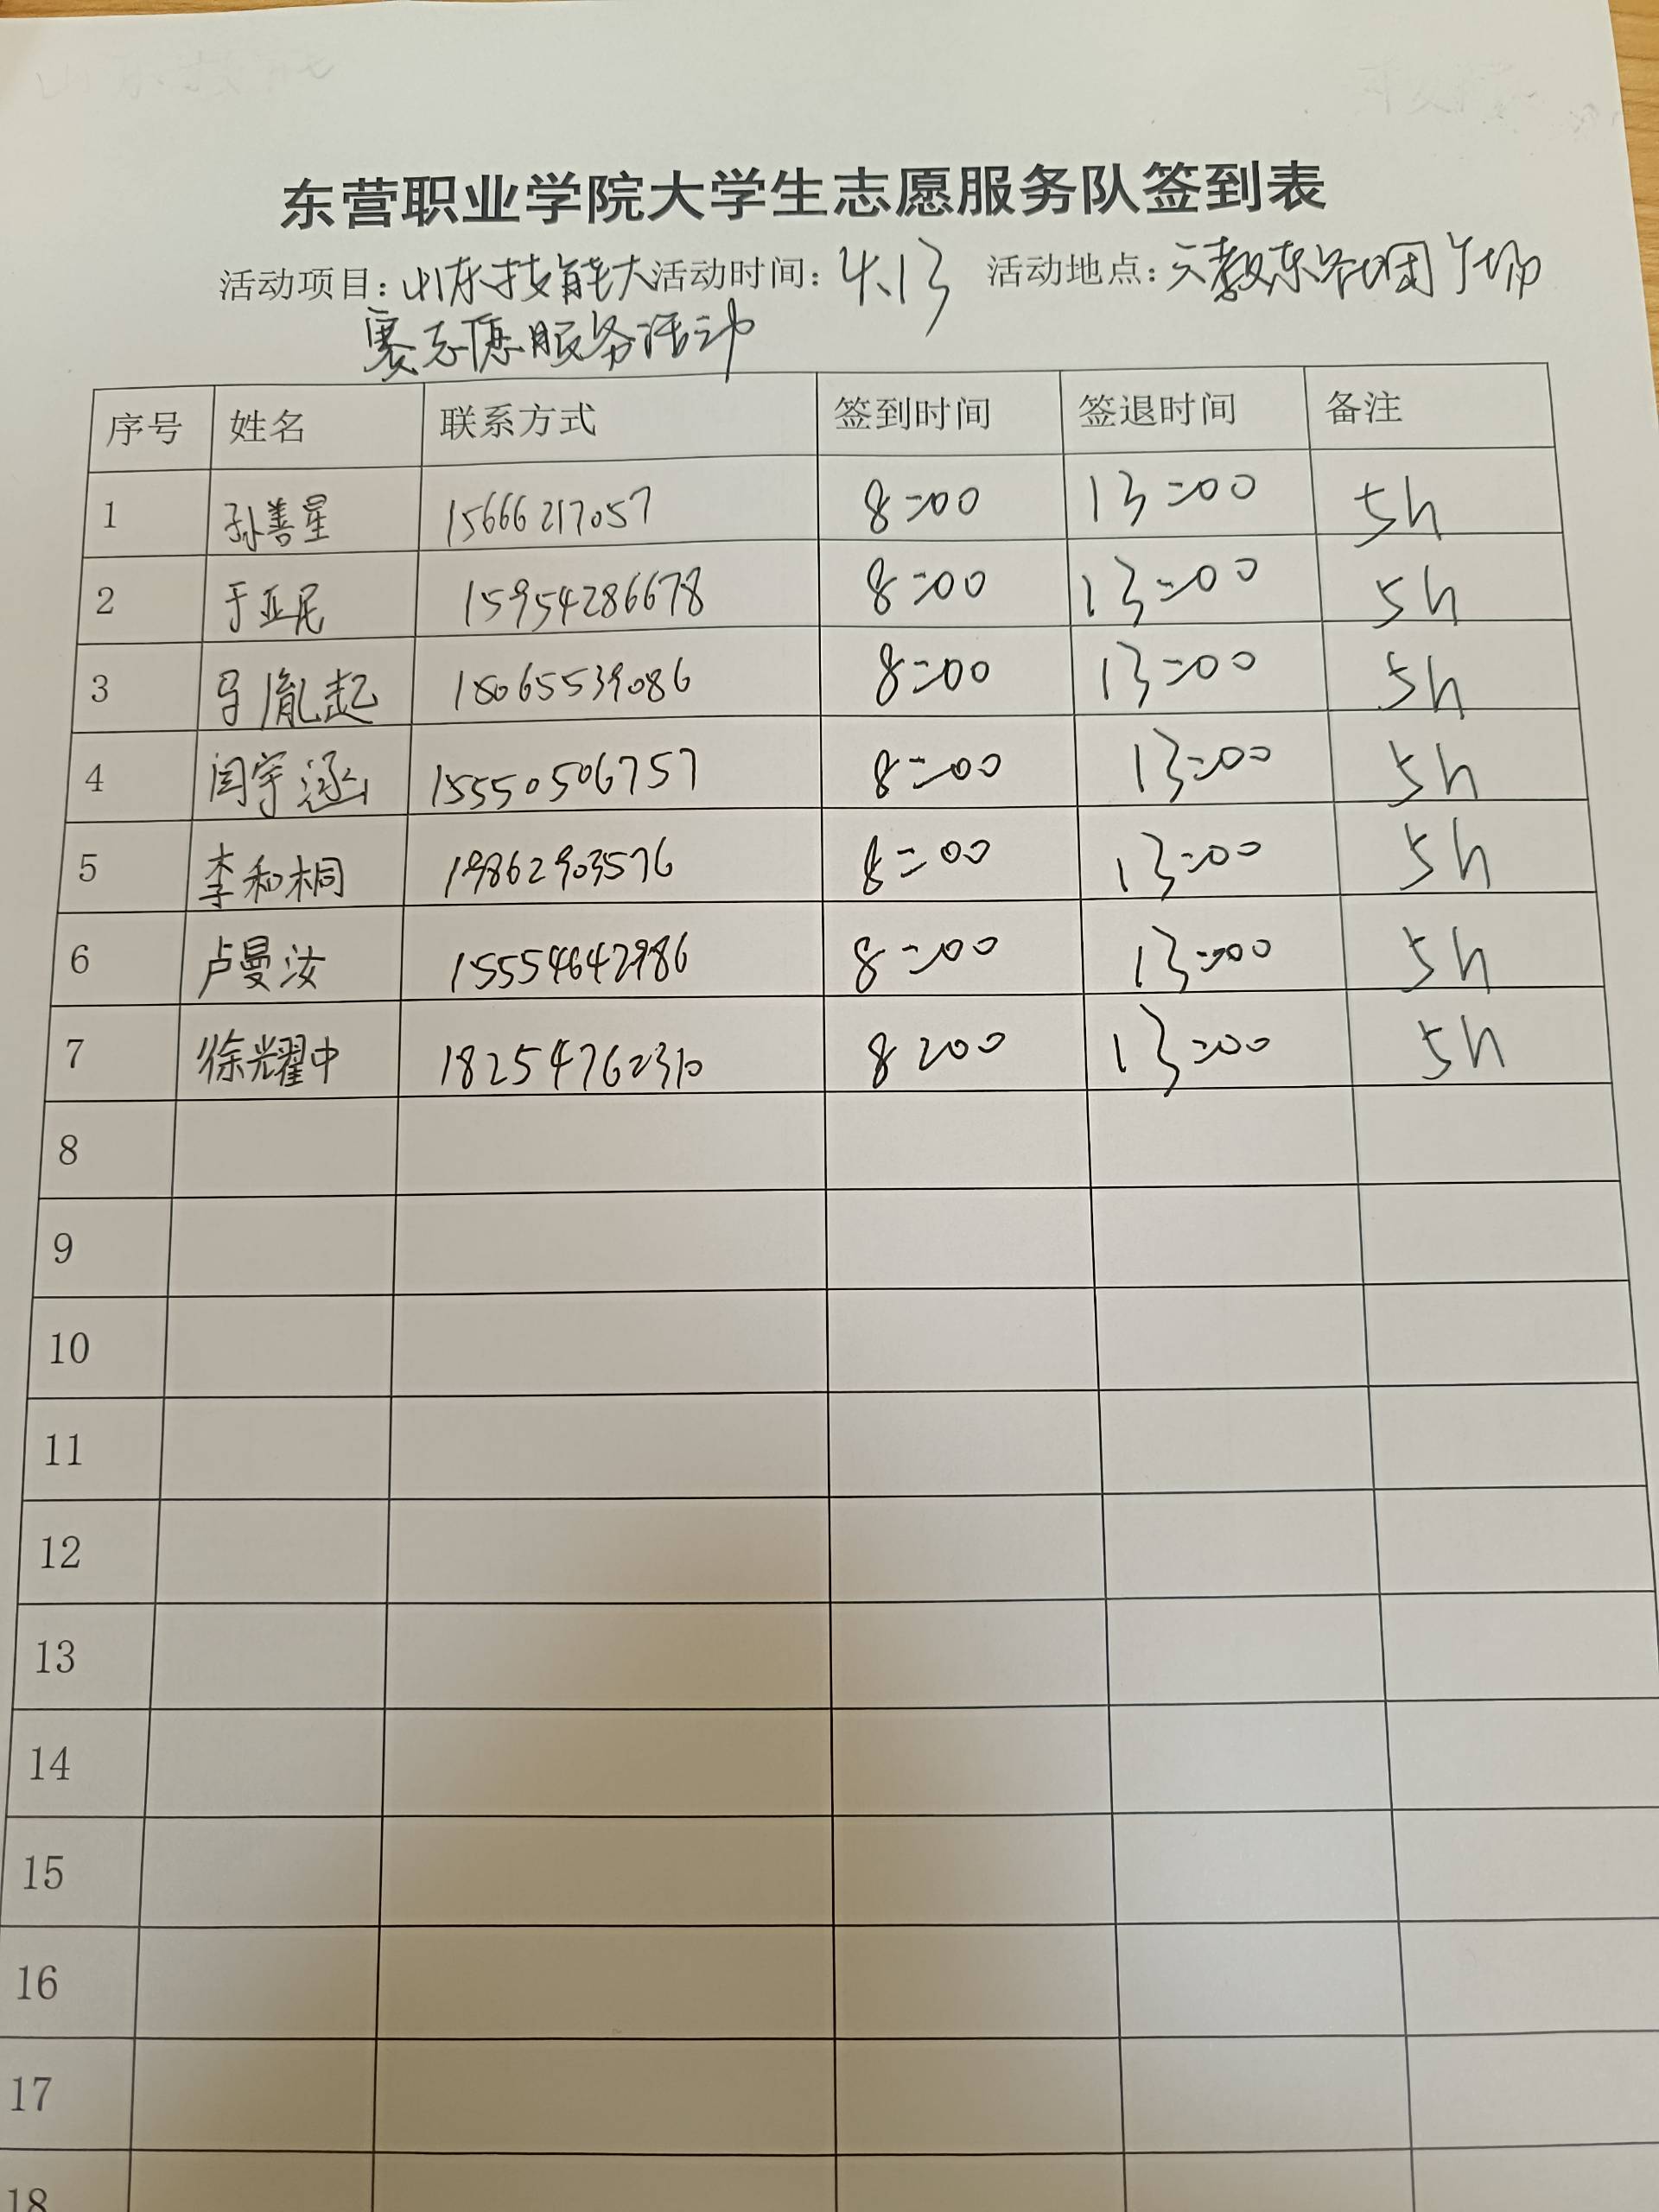 东营职业学院大学生志愿服务队签到表
活动项目：山东技能大 活动时间：4.13 活动地点：六教东 广场
赛志愿服务活动
序号 姓名 联系方式 签到时间 签退时间 备注
1 孙善星 15666217057 8:00 13:00 5h
2 于亚尼 15954286678 8:00 13:00 5h
3 马胤起 18065539086 8:00 13:00 5h
4 闫宇涵 15550506757 8:00 13:00 5h
5 李和桐 19862903576 8:00 13:00 5h
6 卢曼汝 15554642986 8:00 13:00 5h
7 徐耀中 18254762310 8:00 13:00 5h
8
9
10
11
12
13
14
15
16
17
18